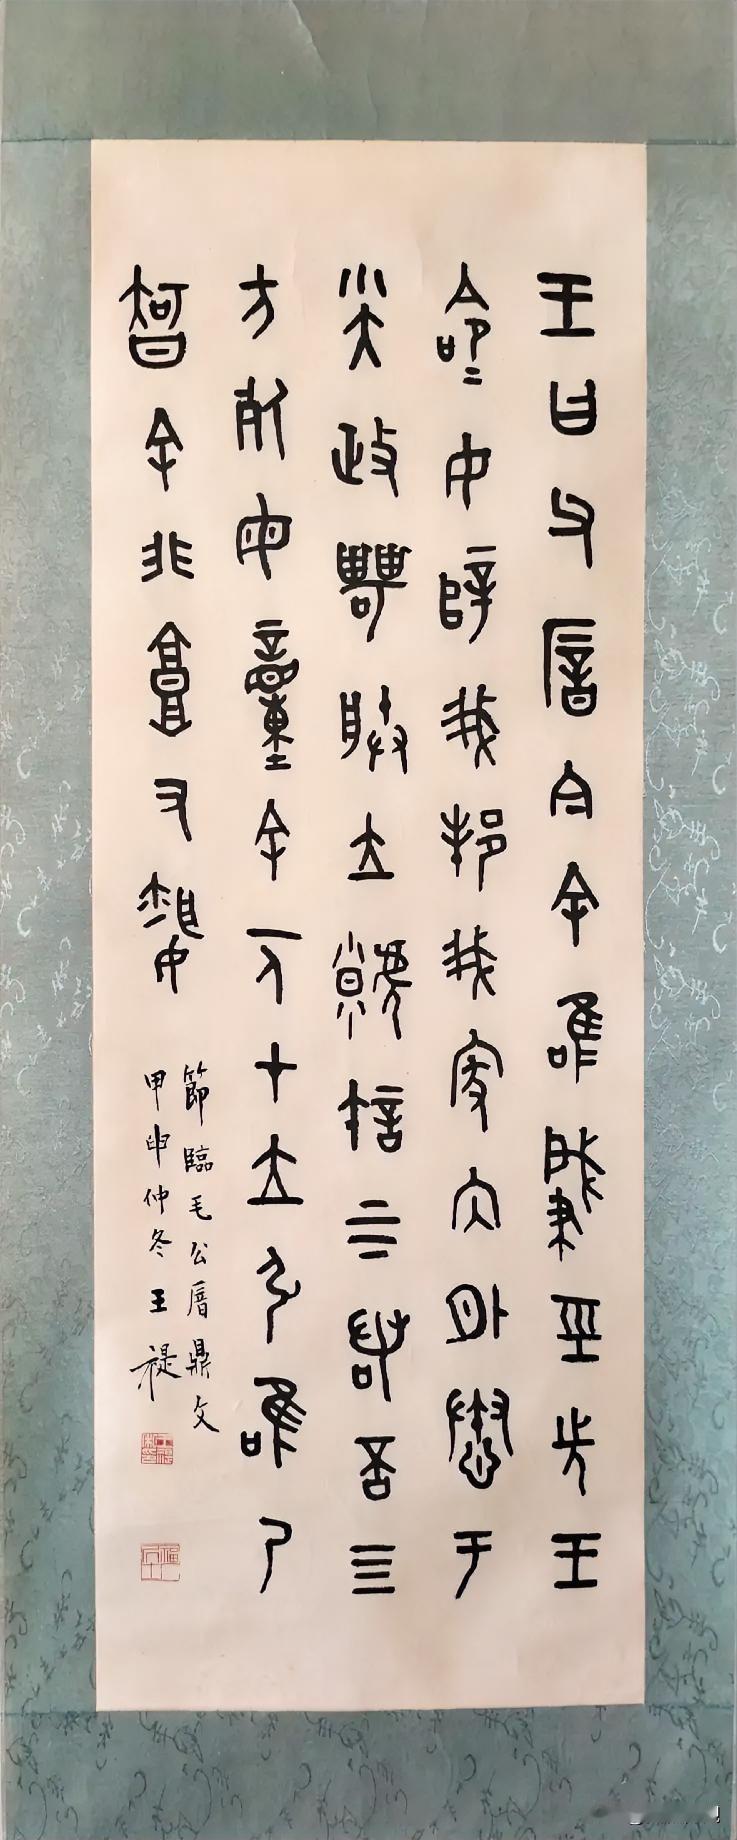 王曰父厝今余唯肇巠先王
命=女辥我邦我家内外憃于
小大政甹朕立虩許上下若否四
方死毋童余一人才立弘唯乃
智余非庸又昏女
節臨毛公厝鼎文
甲申仲冬王禔